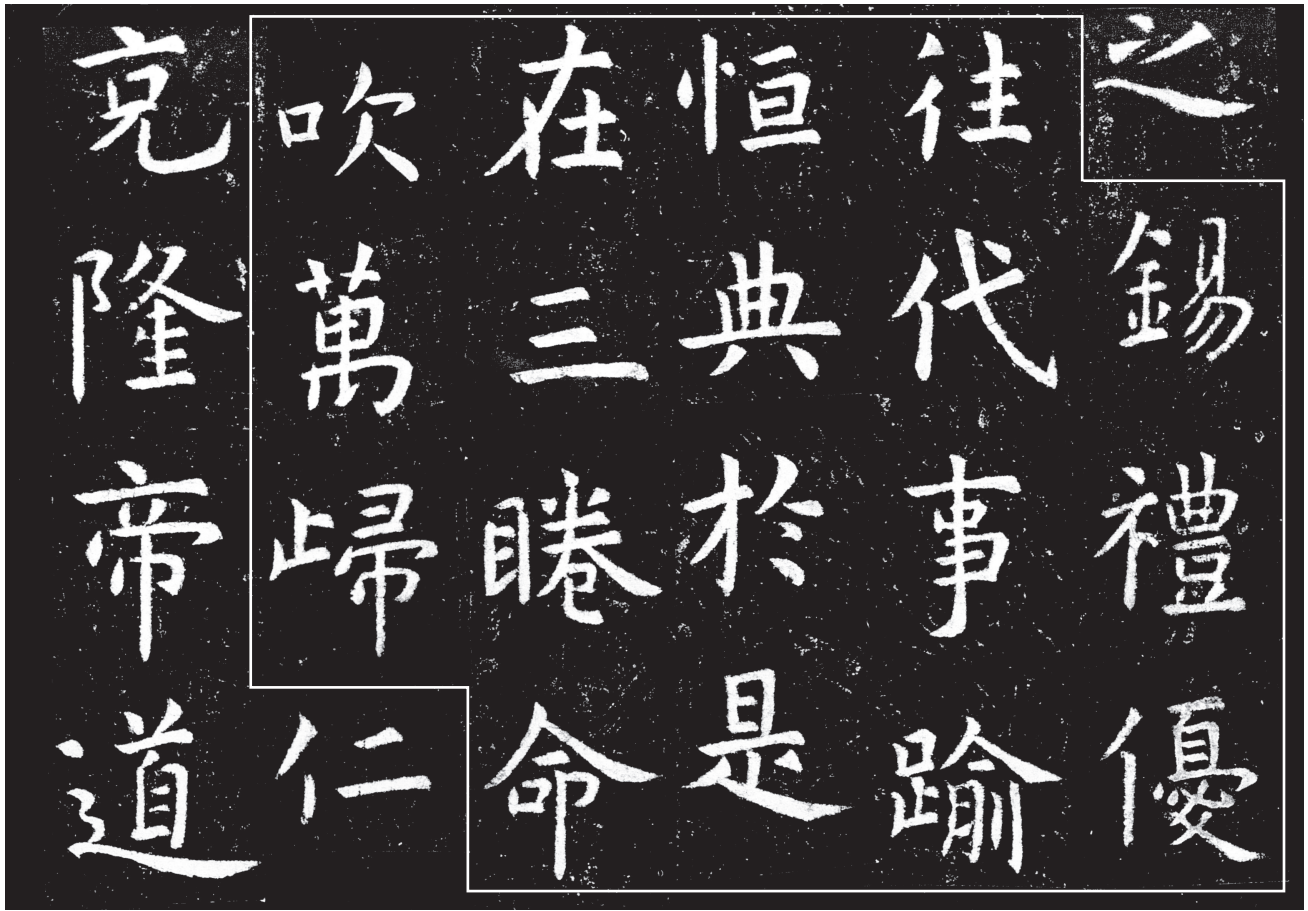 之錫禮優
往代事踰
恒典於是
在三睠命
吹萬歸仁
克隆帝道